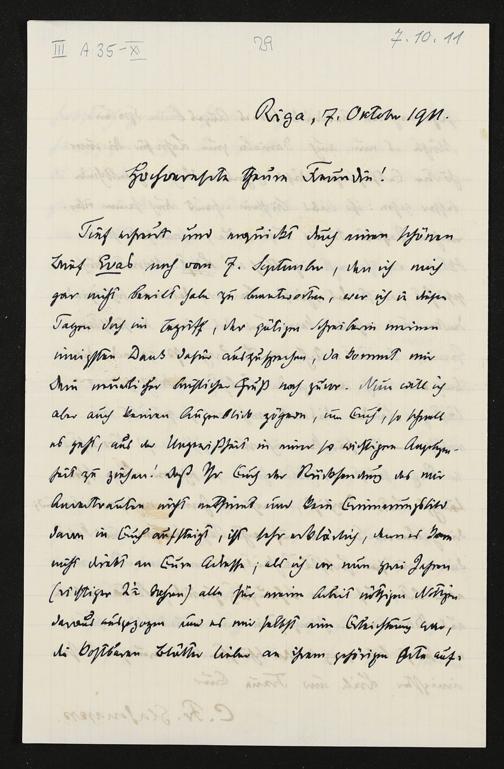 III A 35-XI 29 7.10.11
Riga, 7. Oktober 1911.
Hochverehrte theure Freundin!
Tief erfreut und erquickt durch einen schönen
Brief Evas noch vom 7. September, den ich mich
gar nicht beeilt habe zu beantworten, war ich in diesen
Tagen doch im Begriff, der gütigen Schreiberin meinen
innigsten Dank dafür auszusprechen, da kommt mir
Dein neuerlicher brieflicher Gruß noch zuvor. Nun will ich
aber auch keinen Augenblick zögern, um Euch, so schnell
es geht, aus der Ungewißheit in einer so wichtigen Angelegen-
heit zu ziehen! Daß Ihr Euch der Rücksendung des mir
Anvertrauten nicht entsinnt und kein Erinnerungsbild
davon in Euch aufsteigt, ist sehr erklärlich, denn es kam
nicht direkt an Eure Adresse; als ich vor nun zwei Jahren
(richtiger 2½ Jahren) alle für meine Arbeit nötigen Notizen
daraus ausgezogen und es mir selbst eine Erleichterung war,
die kostbaren Blätter lieber an ihrem gehörigen Orte auf-